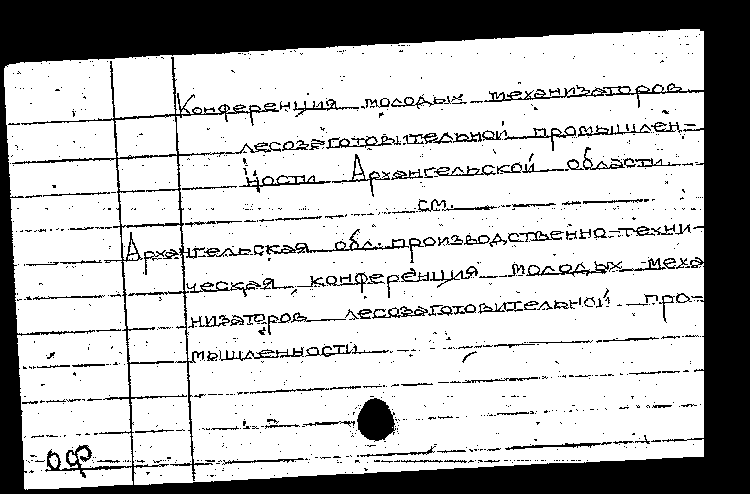 Конференция молодых механизаторов
лесозаготовительной промышлен=
ности Архангельской области.
см.
Архангельская обл. производственно-техни-
ческая конференция молодых меха
низаторов лесозаготовительной про-
мышленности
ОФ